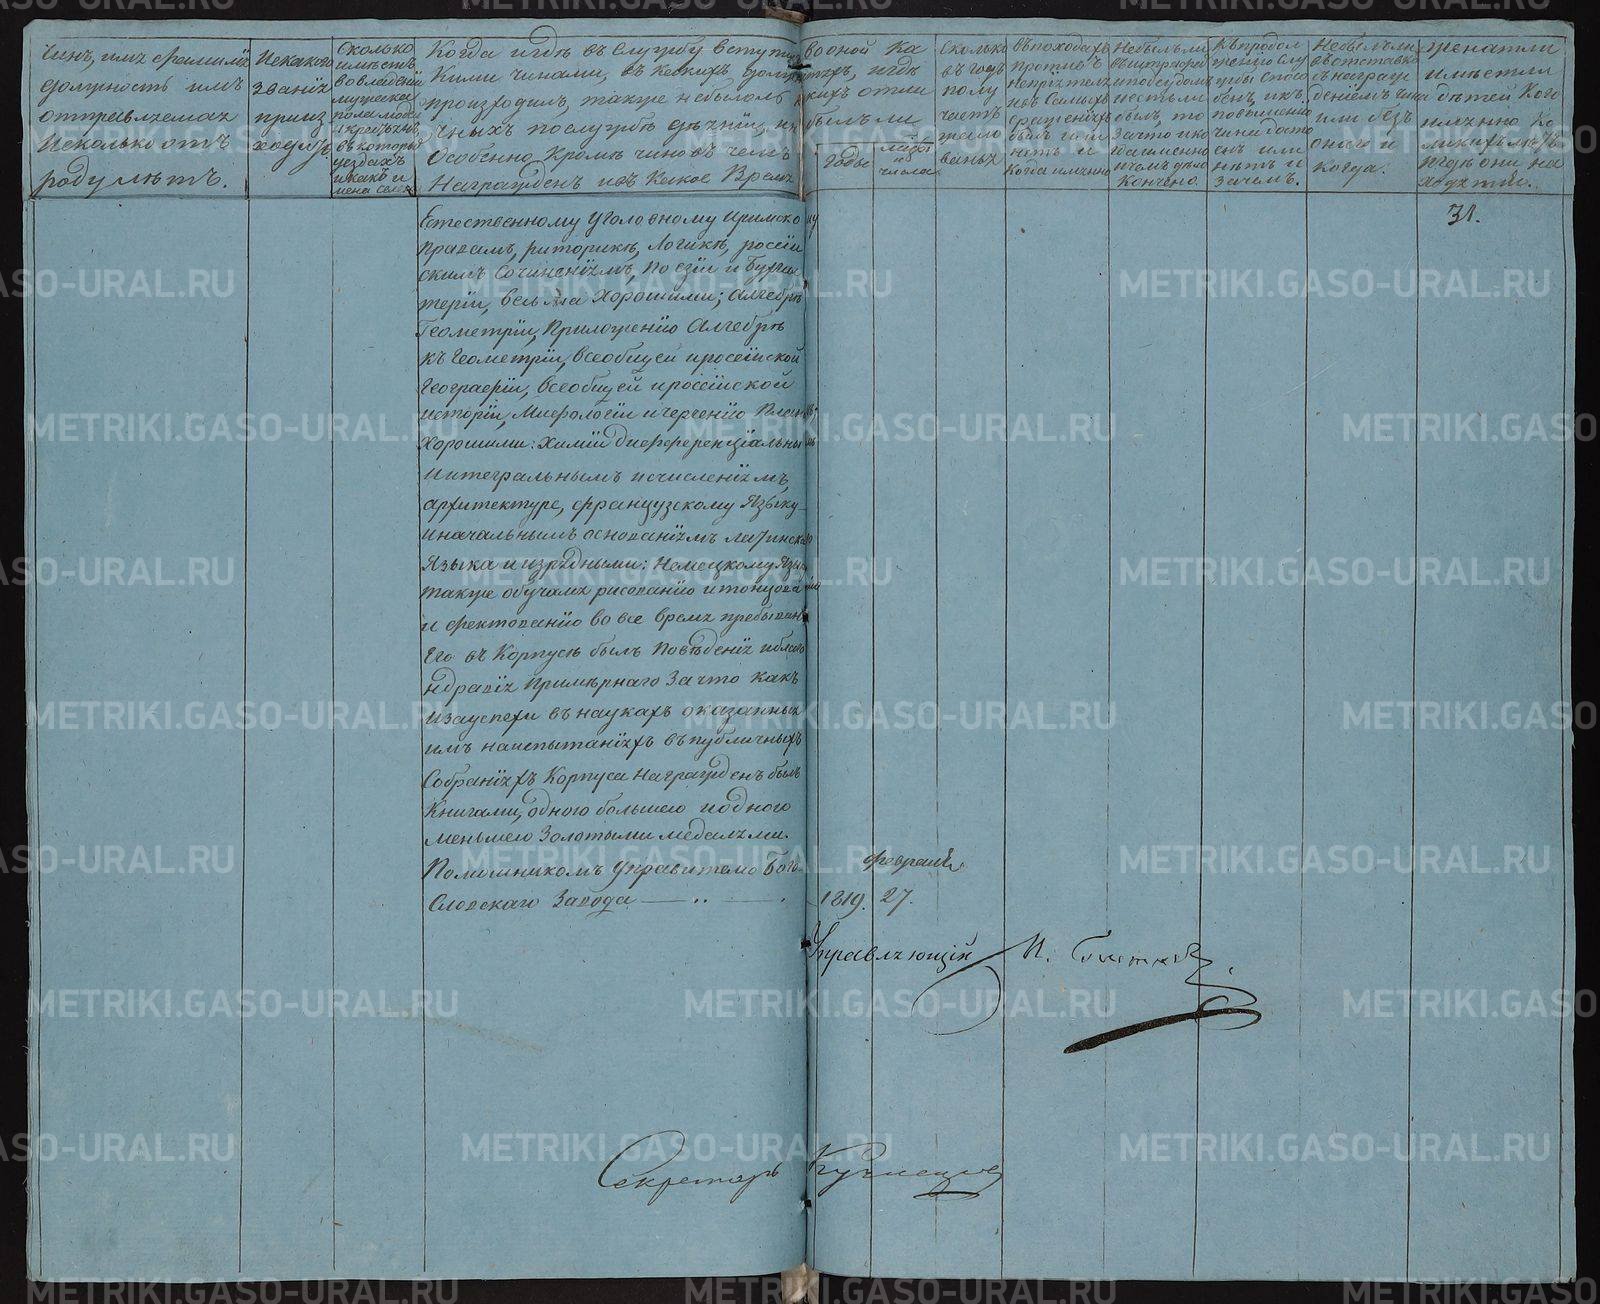 Чинъ, имя фамилия
должность имъ
отправляемая
И сколько отъ
роду лѣтъ.
Ис какого
званія
произ
ходитъ
Сколько
имѣетъ
во владѣніи
мужеска
пола
и крестьянъ
въ которыхъ
уездахъ
и какъ и
мена селе
Когда и гдѣ въ Службу вступи
Кими чинами, въ какихъ долж
произходилъ, также небылоль
чныхъ по службѣ дѣяній, и
Особенно Кромѣ чиновъ чемъ
Награжденъ и въ Какое Время
во оной ка
тяхъ, и гдѣ
кихъ отли
былъ ли
Годы
мѣсяцы
и
числа
Сколько
въ годъ
кому
часть
въ походахъ
противъ
непріятеля
и въ Самыхъ
сраженіяхъ
былъ и ли
нѣтъ и
Когда имянно
Небылъ ли
въ штрафахъ
и подсудомъ
и естьли
былъ, то
За что и ко
гда имянно
и чемъ дѣло
Кончено
Къ продол
женію Слу
жбы спосо
бенъ, и къ
повышенію
чина досто
енъ или
нѣтъ и
зачемъ.
Небылъ ли
въ отставкѣ
съ награж
деніемъ чина
или безъ
онаго и
когда.
женатъ ли
имѣетъ ли
дѣтей Кого
имянно Ко
ликихъ лѣтъ
и гдѣ они на
ходятся.
31.
Естественному Уголовному Римско му
правамъ, риторикѣ, Логикѣ, россій
скимъ Сочиненіямъ, Поезіи и Бухгал
теріи, весьма Хорошими; Алгебрѣ
Геометріи, Приложенію Алгебры
къ Геометріи, Всеобщей и россійской
Географіи, Всеобщей и россійской
исторіи, Мифологіи и черченію План въ;
Хорошими: Химіи диференціальны мъ
интегральнымъ исчисленіямъ,
архитектуре, французскому Языку
и начальнымъ основаніямъ латинска го
Языка и изрядными: Немецкому Язы
также обучался рисованію и танцова нію
и фехтованію во все время пребыван
Его въ Корпусѣ былъ Поведенія и благо
ндравія Примѣрнаго За что какъ
и за успехи въ наукахъ оказанныя
имъ на испытаніяхъ въ публичныхъ
Собраніяхъ Корпуса Награжденъ былъ
Книгами, одною большею и одною
меньшею Золотыми медалями.
Помошникомъ Управителю Бого
Словскаго Завода
февраля
1819. 27.
Управляющій
И.
Секретарь